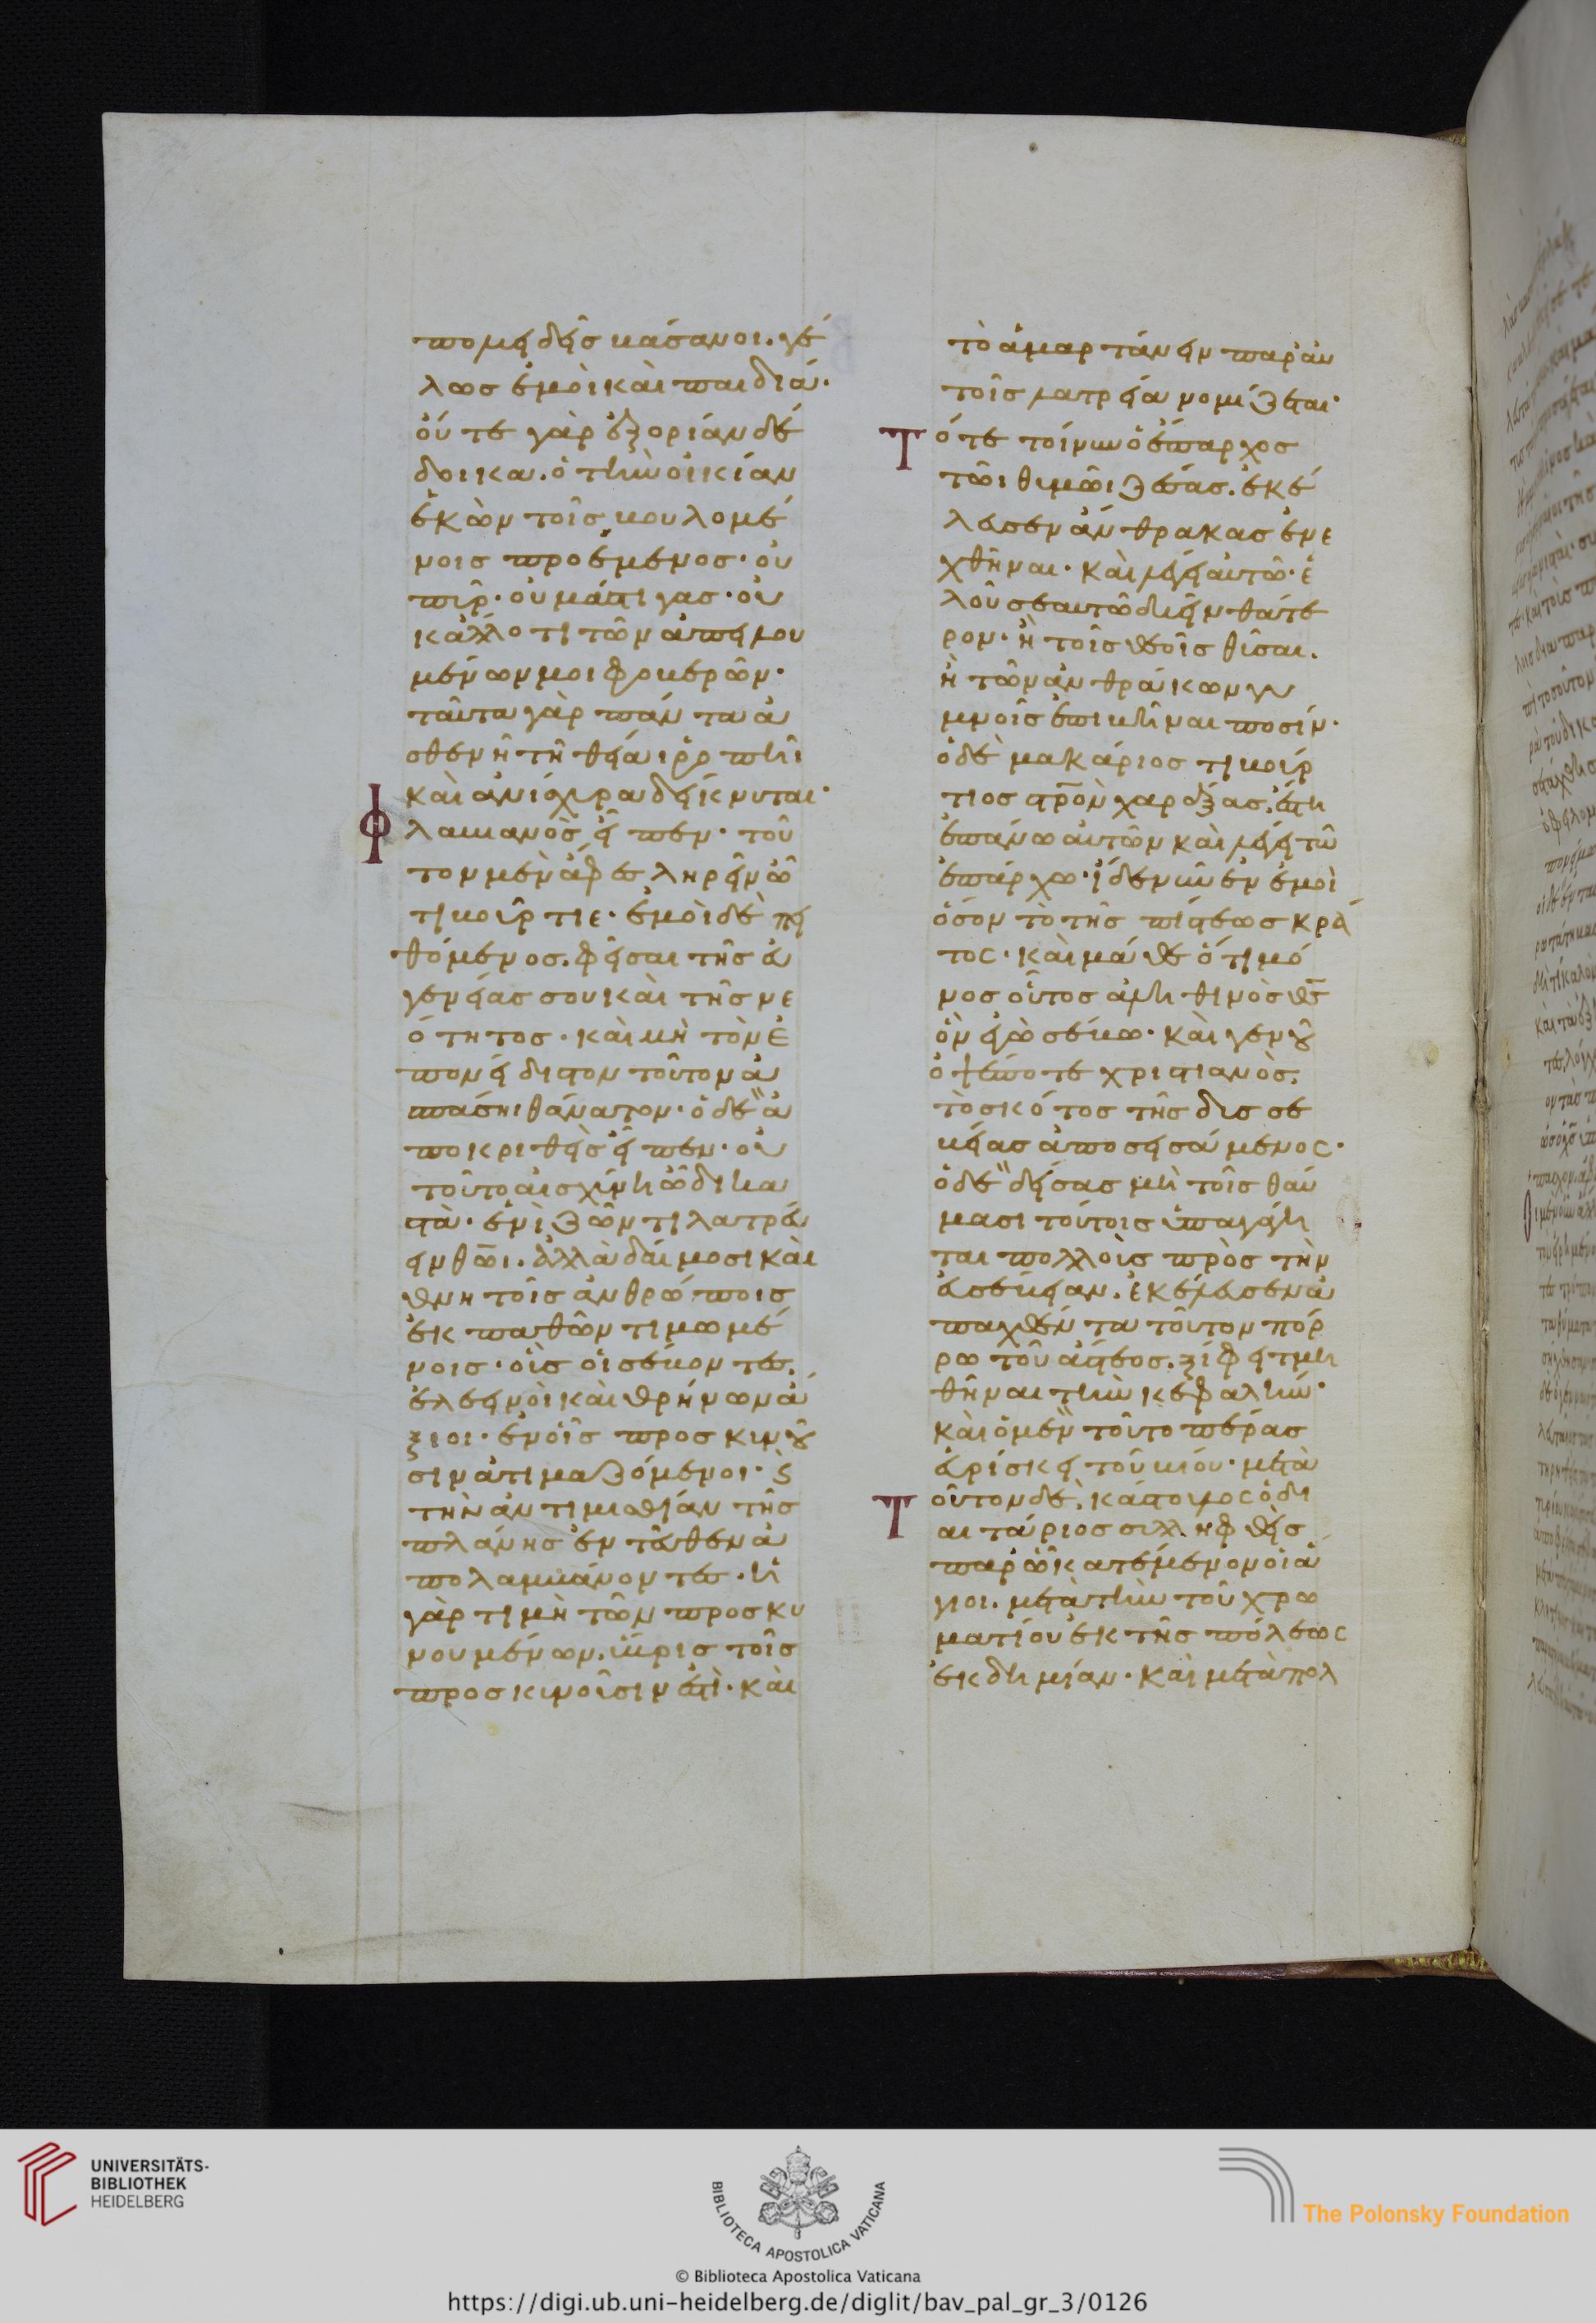 πομειδεῖς βάσανοι. γέ
λως ἐμοὶ καὶ παιδιά.
οὔτε γὰρ ἐξορίαν δέ
δοικα. ὁ τὴν οἰκίαν
ἑκὼν τοῖς βουλομέ
νοις προέμενος. οὐ
πῦρ. οὐ μάστιγας. οὐ
κ ἄλλό τι τῶν ἀπειλου
μένων μοι φοβερῶν.
ταῦτα γὰρ πάντα ἀ
σθενῆ τῆ θεία ῥοπῆι
καὶ ἀνίσχυρα δείκνυται.
Φλαβιανὸς εἶπεν. τοῦ
τον μὲν ἄφες ληρεῖν ὦ
τιβούρτιε. ἐμοὶ δὲ πει
θόμενος. φεῖσαι τῆς εὐ
γενείας σου καὶ τῆς νε
ότητος. καὶ μὴ τὸν ἐ
πονείδιστον τοῦτον ἀ
γαπάσηι θάνατον. ὁ δὲ ἀ
ποκριθεὶς εἶπεν. οὐ
τοῦτο αἰσχύνη ὦ δικα
στὰ. ἐνὶ ζῶντι λατρεύ
ειν θῶι. ἀλλὰ δαίμοσι καὶ
θνητοῖς ἀνθρώποις
ἐκ παθῶν τιμωμέ
νοις. οἷς οἱ σέβοντες.
ἐλεεινοὶ καὶ θρήνων ἄ
ξιοι. ἐν οἷς προσκυνοῦ
σιν ἀτιμαζόμενοι. καὶ
τὴν ἀντιμισθίαν τῆς
πλάνης ἐντεῦθεν ἀ
πολαμβάνοντες. ἡ
γὰρ τιμὴ τῶν προσκυ
νουμένων. ὕβρις τοῖς
προσκυνοῦσιν ἐστὶ. καὶ
τὸ ἁμαρτάνειν παρ' αὐ
τοῖς λατρεία νομίζεται.
Τότε τοίνυν ὁ ἔπαρχος
τῶι θυμῶι ζέσας. ἐκέ
λευσεν ἄνθρακας ἐνε
χθῆναι. καὶ λέγει αὐτῶ. ἑ
λοῦ σεαυτῶ δυεῖν θάτε
ρον. ἢ τοῖς θεοῖς θῦσαι.
ἢ τῶν ἀνθράκων γυ
μνοῖς ἐπιβῆναι ποσίν.
ὁ δὲ μακάριος τιβούρ
τιος στρὸν χαράξας. ἔστη
ἐπάνω αὐτῶν καὶ λέγει τῶ
ἐπάρχω. ἴδε νῦν ἐν ἐμοὶ
ὅσον τὸ τῆς πίστεως κρά
τος. καὶ μάθε ὅτι μό
νος οὗτος ἀληθινὸς θς
ὃν ἐγὼ σέβω. καὶ γενοῦ
ὀψέποτε χριστιανὸς.
τὸ σκότος τῆς δυσσε
βείας ἀποσεισάμενος.
ὁ δὲ δείσας μὴ τοῖς θαύ
μασι τούτοις ὑπαγάγη
ται πολλοὺς πρὸς τὴν
εὐσέβειαν. ἐκέλευσεν ἀ
παχθέντα τοῦτον πόρ
ρω τοῦ ἄστεος. ξίφει τμη
θῆναι τὴν κεφαλήν.
καὶ ὁ μὲν τοῦτο πέρας
εὑρίσκει τοῦ βίου. μετὰ
Τοῦτον δὲ, κάστουλος ὁ ζη
αιτάριος συλληφθεὶς
παρ' ὧ κατέμενον οἱ ἅ
γιοι. μετὰ τὴν τοῦ χρω
ματίου ἐκ τῆς πόλεως
ἐκδημίαν. καὶ μετὰ πολ
UNIVERSITÄTS-
BIBLIOTHEK
HEIDELBERG
BIBLIOTECA APOSTOLICA VATICANA
The Polonsky Foundation
© Biblioteca Apostolica Vaticana
https://digi.ub.uni-heidelberg.de/diglit/bav_pal_gr_3/0126